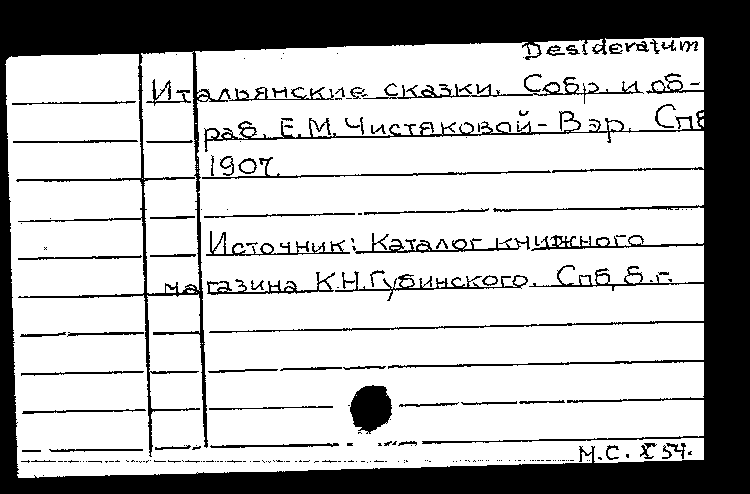 Desideratum
Итальянские сказки. Собр. и об-
раб. Е.М. Чистяковой-Вэр. Спб
1907.
Источник: Каталог книжного
магазина К.Н.Губинского. Спб, б.г.
М.С. X 54.